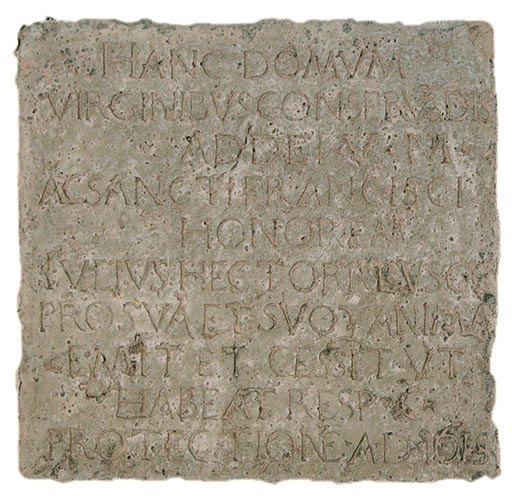 HANC DOMVM
VIRGINIBVS CONSERVADIS
AD DEI
AC SANCTI FRANCISCI
HONOREM
IVLIVS HECTOR
PRO SVA ET SVOR ANIMA
EMIT ET CESSIT VT
HABEAT RESP
PROTECTIONE AD